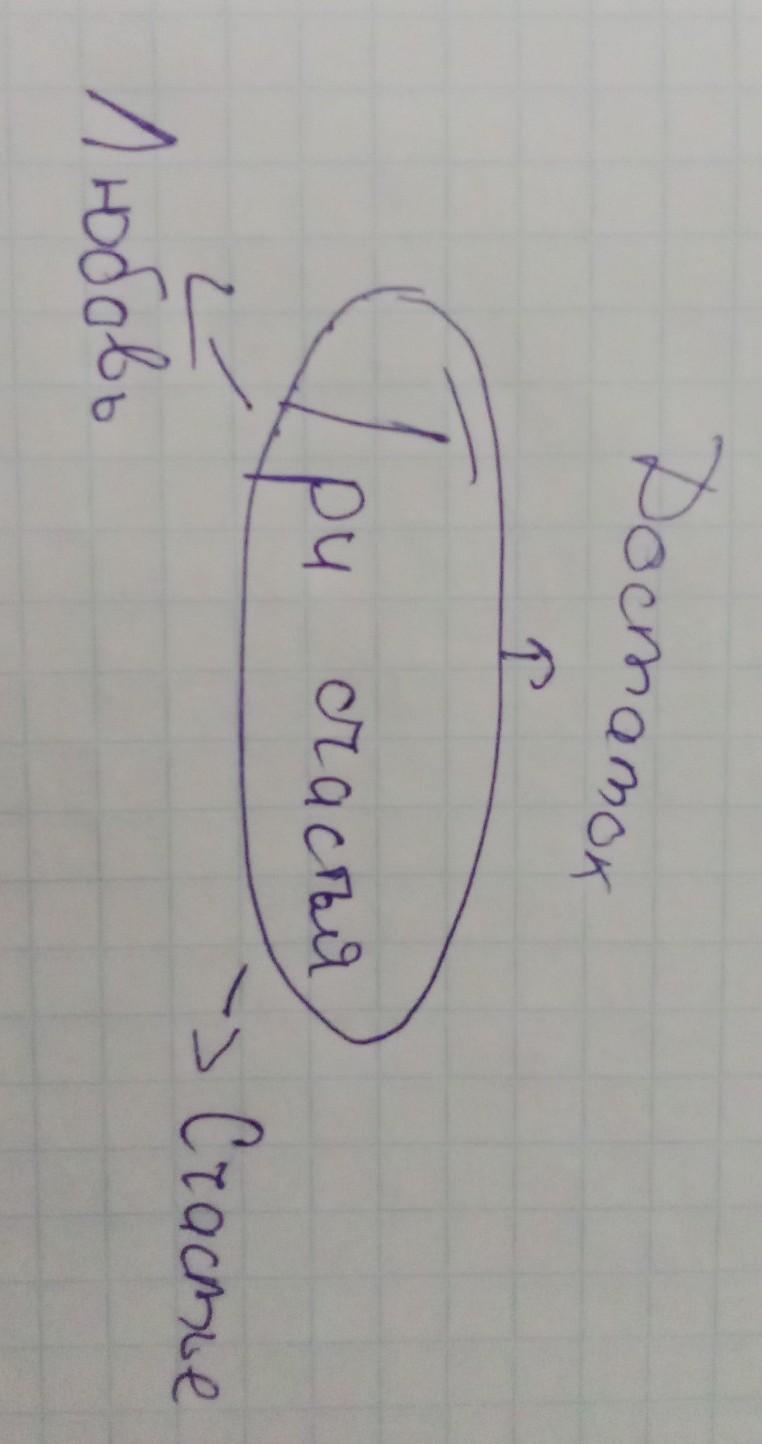 Достаток
Три счастья
Любовь
Счастье